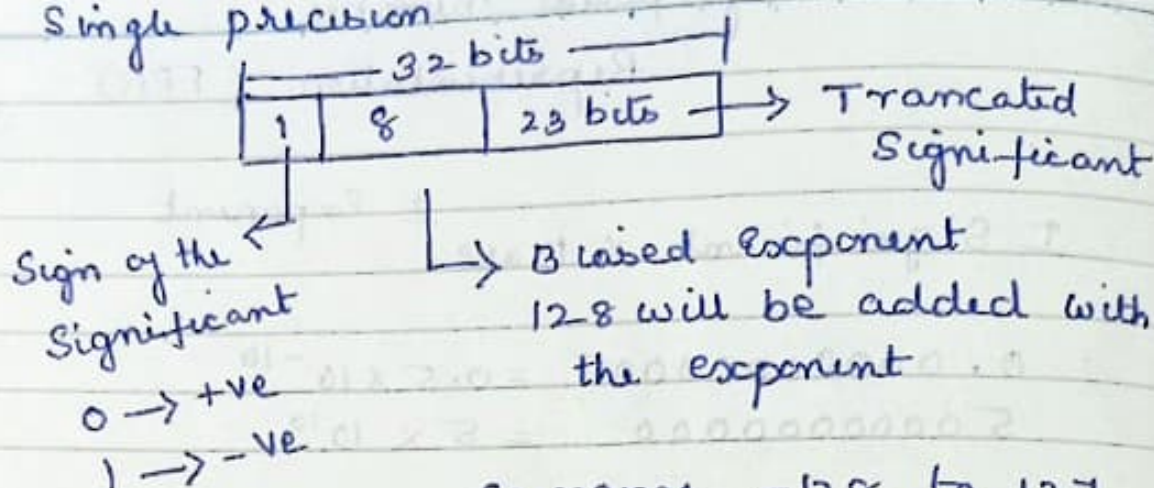 Single precision
32 bits
1 8 23 bits → Trancated
Significant
Sign of the
Significant
0 → +ve
1 → -ve
Biased Exponent
128 will be added with
the exponent
to 127